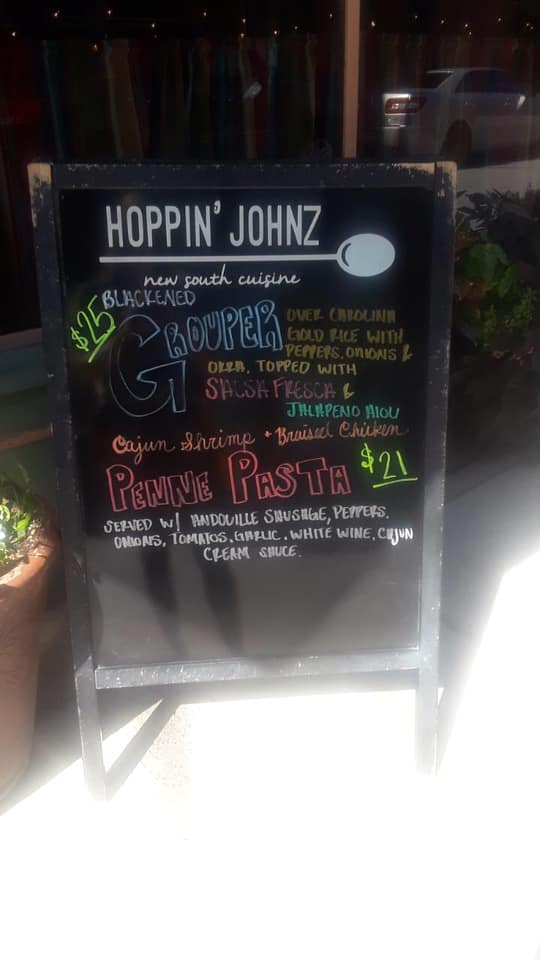 HOPPIN' JOHNZ
new south cuisine
$25
BLACKENED
GROUPER
OVER CAROLINA
GOLD RICE WITH
PEPPERS, ONIONS &
OKRA, TOPPED WITH
SALSA FRESCA &
JALAPENO AIOLI
Cajun Shrimp + Braised Chicken
PENNE PASTA $21
SERVED W/ ANDOUILLE SAUSAGE, PEPPERS,
ONIONS, TOMATOS, GARLIC, WHITE WINE, CAJUN
CREAM SAUCE.